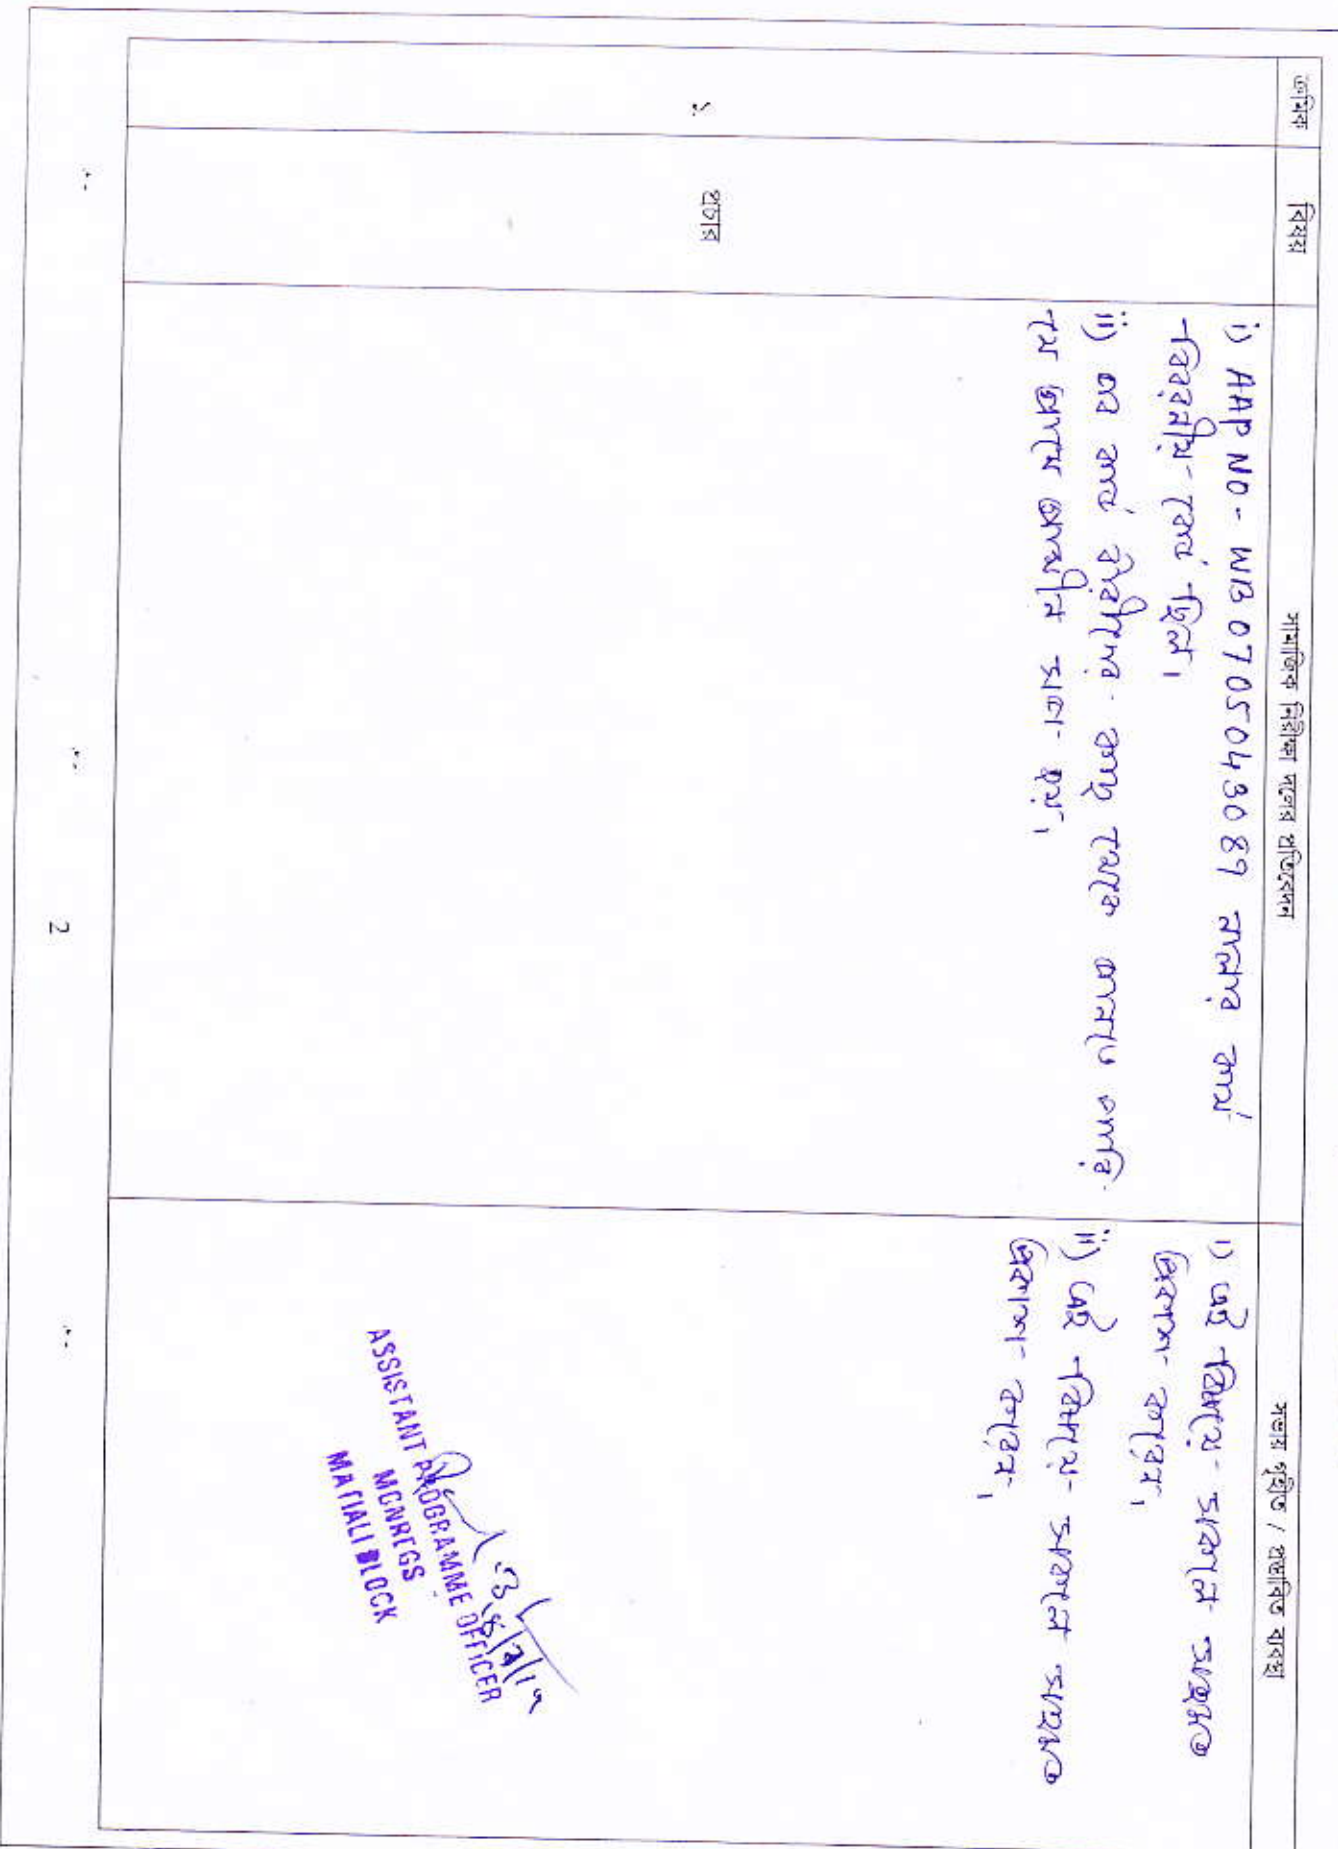 ক্রমিক
বিষয়
সামাজিক নিরীক্ষা দলের প্রতিবেদন
সভায় গৃহীত / প্রস্তাবিত ব্যবস্থা
১
প্রচার
i) AAP NO- WB 0705043089 নাম্বার কার্য
বিবরনীয় বোর্ড ছিল।
ii) এর কার্ড হোল্ডারদের কাছ থেকে জানতে পারি
যে গ্রামে গ্রামীন সভা হয়।
i) এই বিষয়ে সকলে সহমত
প্রকাশ করেন,
ii) এই বিষয়ে সকলে সহমত
প্রকাশ করেন,
ASSISTANT PROGRAMME OFFICER
MGNREGS
MATIALI BLOCK
2